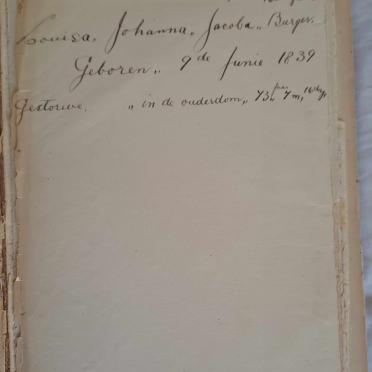 Louisa, Johanna, Jacoba,, Burger.
Geboren,, 9 de Junie 1839
Gestorwe,,, in de ouderdom,, 73 jaar 7 m, 16 dgs